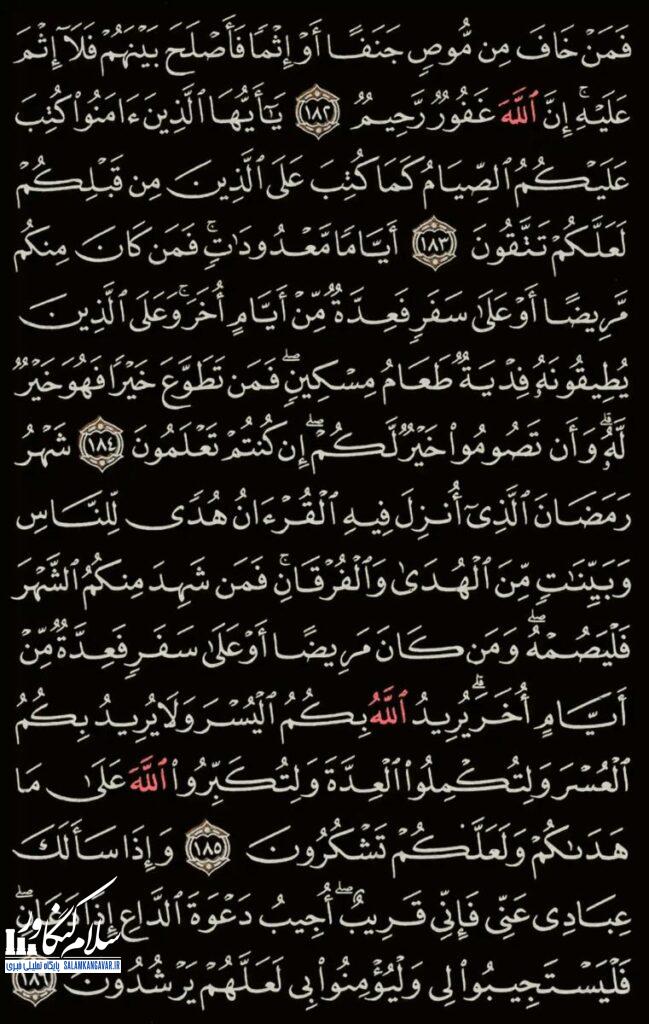 فَمَنْ خَافَ مِن مُّوصٍ جَنَفًا أَوْ إِثْمًا فَأَصْلَحَ بَيْنَهُمْ فَلَآ إِثْمَ
عَلَيْهِ ۚ إِنَّ ٱللَّهَ غَفُورٌ رَّحِيمٌ ١٨٢ يَـٰٓأَيُّهَا ٱلَّذِينَ ءَامَنُوا۟ كُتِبَ
عَلَيْكُمُ ٱلصِّيَامُ كَمَا كُتِبَ عَلَى ٱلَّذِينَ مِن قَبْلِكُمْ
لَعَلَّكُمْ تَتَّقُونَ ١٨٣ أَيَّامًا مَّعْدُودَٰتٍ ۚ فَمَن كَانَ مِنكُم
مَّرِيضًا أَوْ عَلَىٰ سَفَرٍ فَعِدَّةٌ مِّنْ أَيَّامٍ أُخَرَ ۚ وَعَلَى ٱلَّذِينَ
يُطِيقُونَهُۥ فِدْيَةٌ طَعَامُ مِسْكِينٍ ۖ فَمَن تَطَوَّعَ خَيْرًا فَهُوَ خَيْرٌ
لَّهُۥ ۚ وَأَن تَصُومُوا۟ خَيْرٌ لَّكُمْ ۖ إِن كُنتُمْ تَعْلَمُونَ ١٨٤ شَهْرُ
رَمَضَانَ ٱلَّذِىٓ أُنزِلَ فِيهِ ٱلْقُرْءَانُ هُدًى لِّلنَّاسِ
وَبَيِّنَـٰتٍ مِّنَ ٱلْهُدَىٰ وَٱلْفُرْقَانِ ۚ فَمَن شَهِدَ مِنكُمُ ٱلشَّهْرَ
فَلْيَصُمْهُ ۖ وَمَن كَانَ مَرِيضًا أَوْ عَلَىٰ سَفَرٍ فَعِدَّةٌ مِّنْ
أَيَّامٍ أُخَرَ ۗ يُرِيدُ ٱللَّهُ بِكُمُ ٱلْيُسْرَ وَلَا يُرِيدُ بِكُمُ
ٱلْعُسْرَ وَلِتُكْمِلُوا۟ ٱلْعِدَّةَ وَلِتُكَبِّرُوا۟ ٱللَّهَ عَلَىٰ مَا
هَدَىٰكُمْ وَلَعَلَّكُمْ تَشْكُرُونَ ١٨٥ وَإِذَا سَأَلَكَ
عِبَادِى عَنِّى فَإِنِّى قَرِيبٌ ۖ أُجِيبُ دَعْوَةَ ٱلدَّاعِ إِذَا دَعَانِ ۖ
فَلْيَسْتَجِيبُوا۟ لِى وَلْيُؤْمِنُوا۟ بِى لَعَلَّهُمْ يَرْشُدُونَ ١٨٦
سلام کنگاور
پایگاه تحلیلی خبری SALAMKANGAVAR.IR